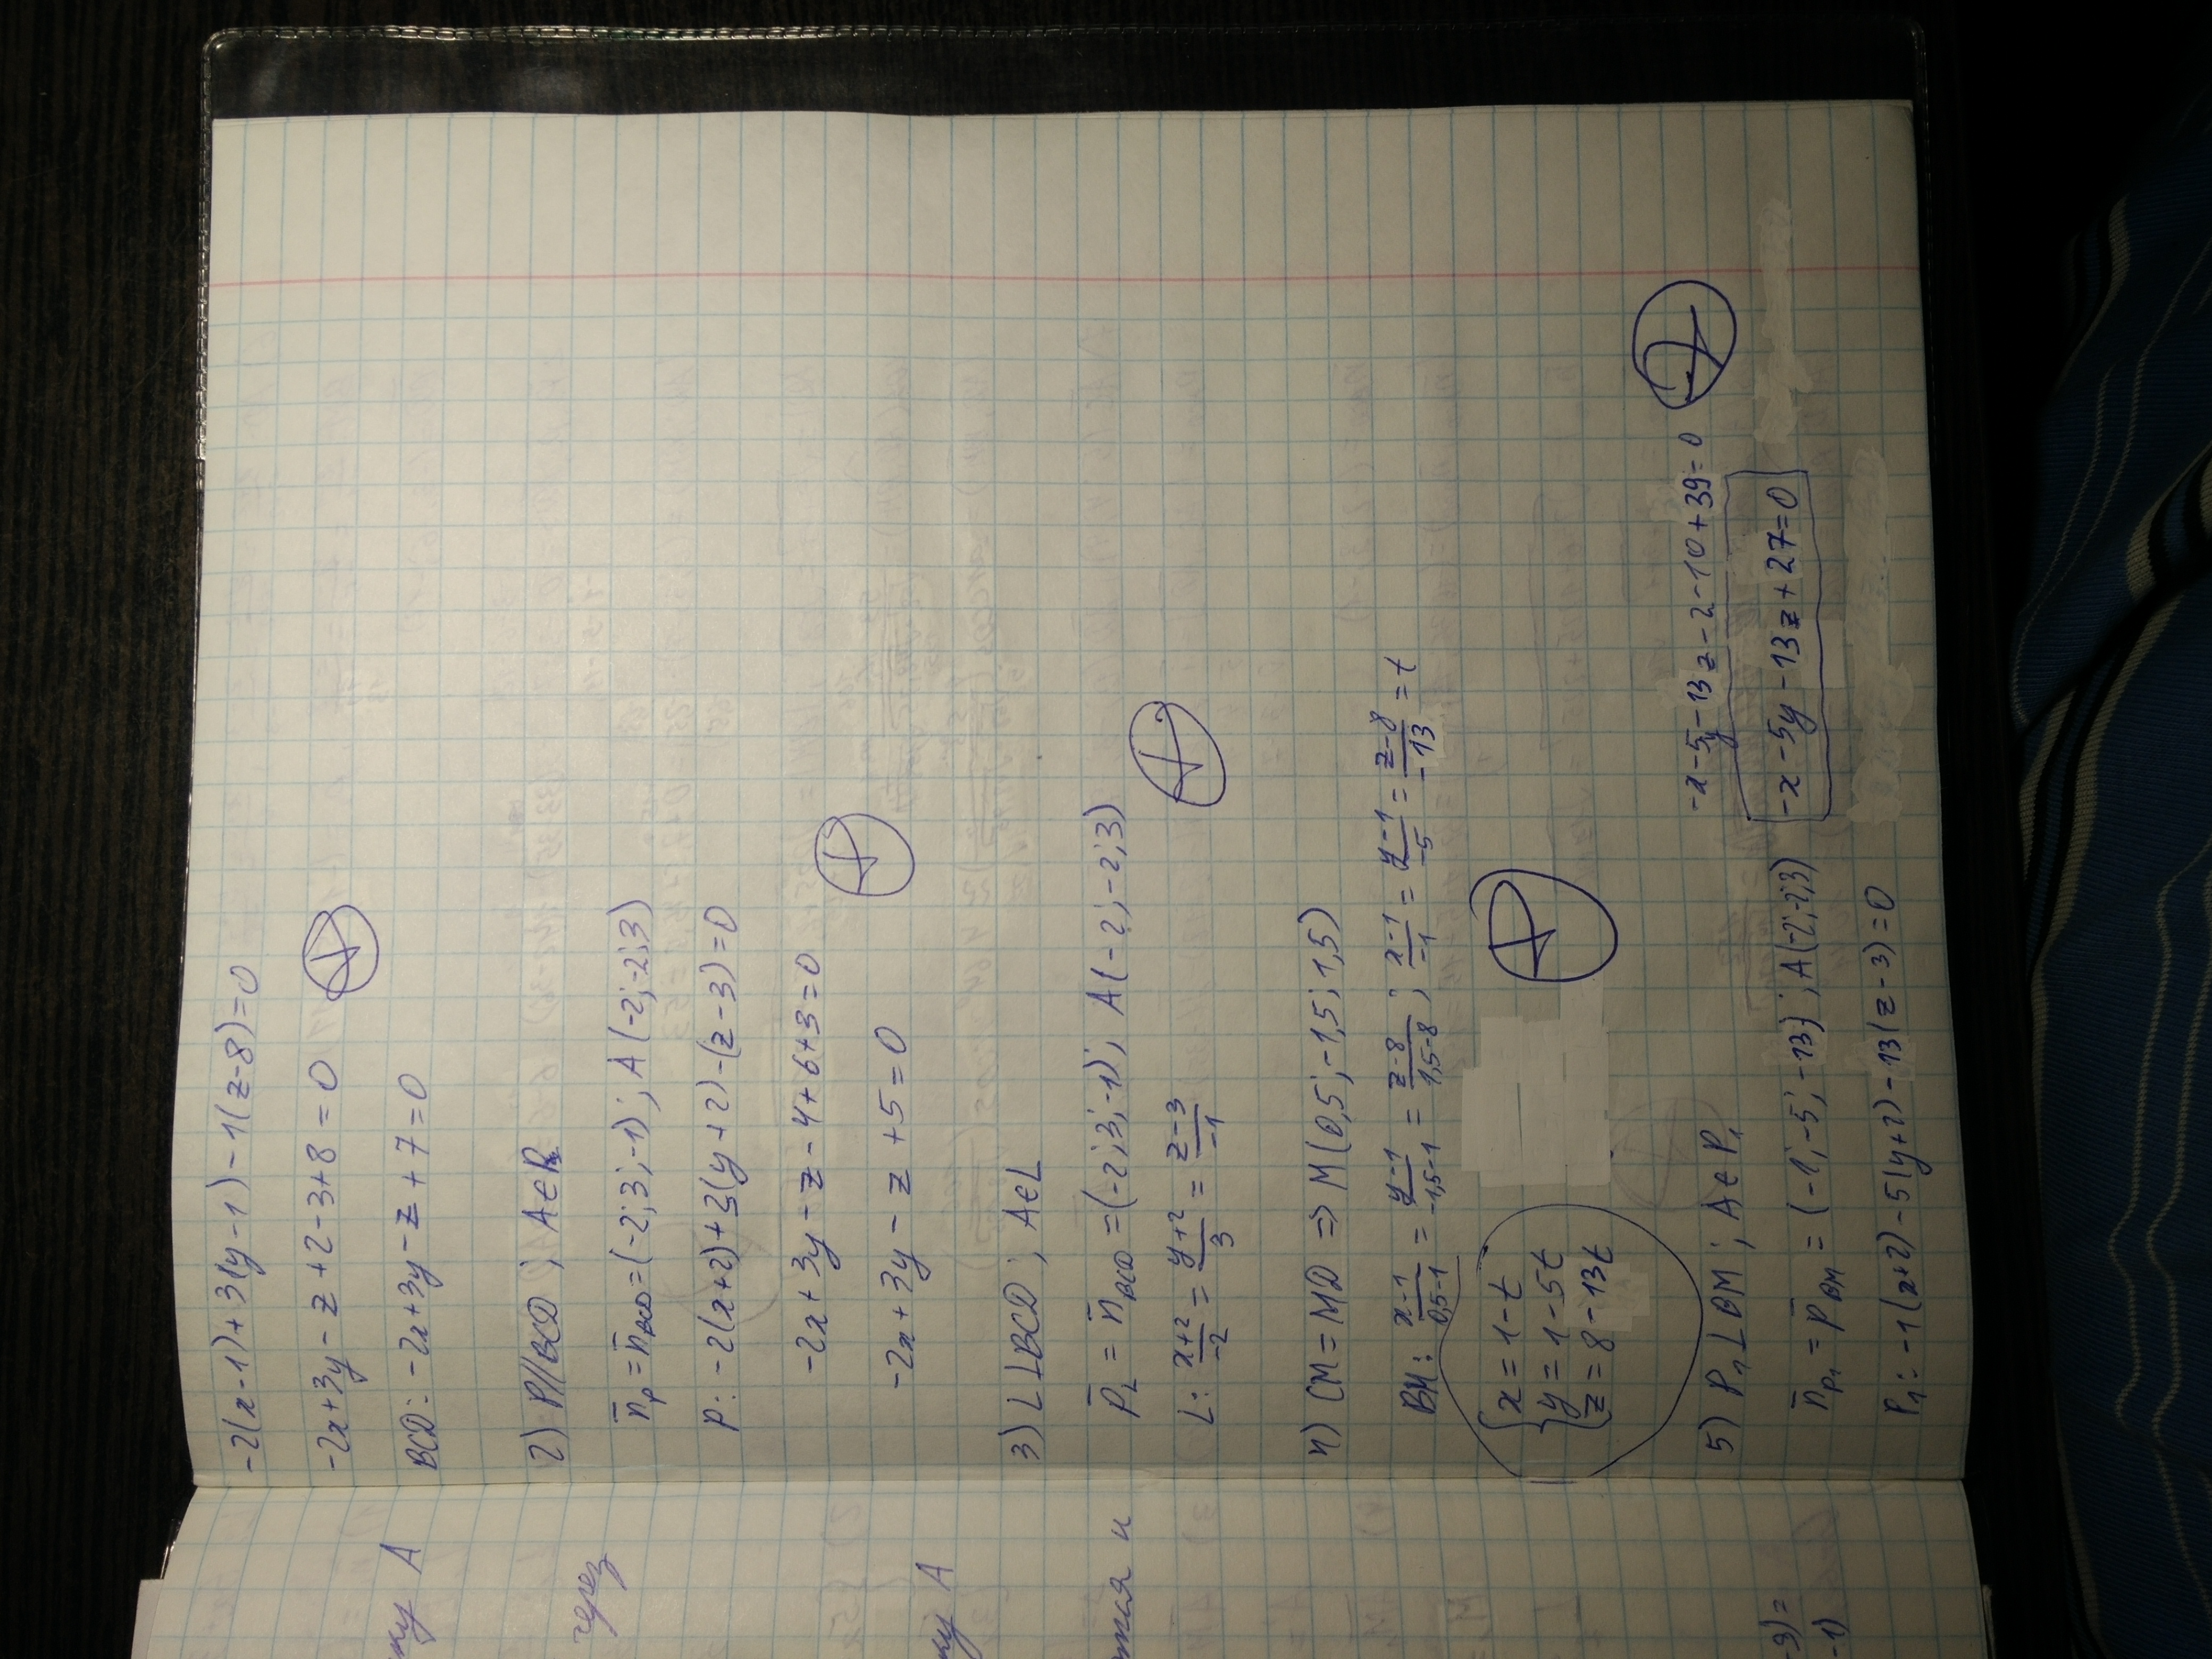 -2(x-1)+3(y-1)-1(z-8)=0
-2x+3y-z+2-3+8=0
BCD: -2x+3y-z+7=0
2) P//BCD ; A∈P
n̅ₚ = n̅_BCD = (-2;3;-1); A(-2;-2;3)
P: -2(x+2)+3(y+2)-(z-3)=0
-2x+3y-z-4+6+3=0
-2x+3y-z+5=0
3) L⊥BCD ; A∈L
P̅_L = n̅_BCD = (-2;3;-1); A(-2;-2;3)
L: (x+2)/-2 = (y+2)/3 = (z-3)/-1
4) CM = MD => M(0,5; -1,5; 1,5)
BM: (x-1)/(0,5-1) = (y-1)/(-1,5-1) = (z-8)/(1,5-8) ; (x-1)/-1 = (y-1)/-5 = (z-8)/-13 = t
{ x = 1-t
y = 1-5t
z = 8-13t
5) P₁⊥BM ; A∈P₁
n̅_P₁ = p̅_BM = (-1; -5; -13) ; A(-2;-2;3)
P₁: -1(x+2)-5(y+2)-13(z-3)=0
-x-5y-13z-2-10+39=0
-x-5y-13z+27=0
ку A
через
ку A
тая и
-3)=
-1)